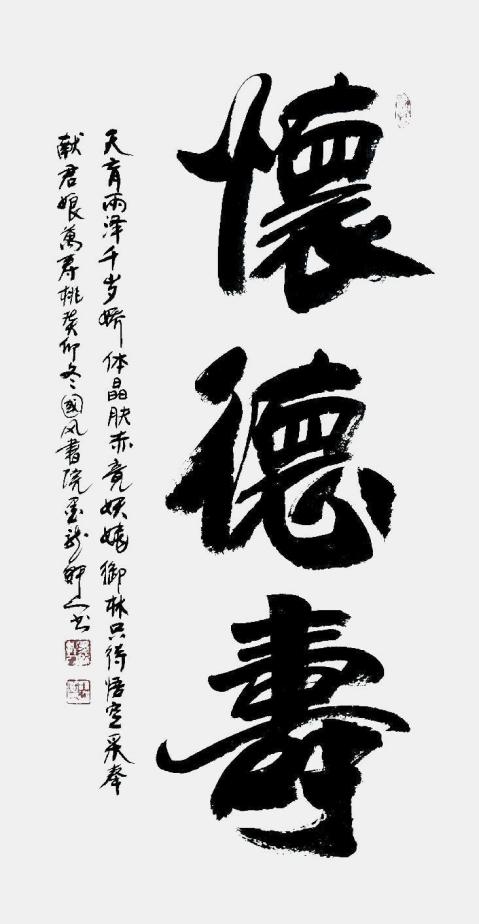 懷德壽
天育雨泽千岁娇体晶肤赤竟妖娆御林只待悟空采奉
献君娘萬寿桃癸卯冬國风書院墨龙軒人书